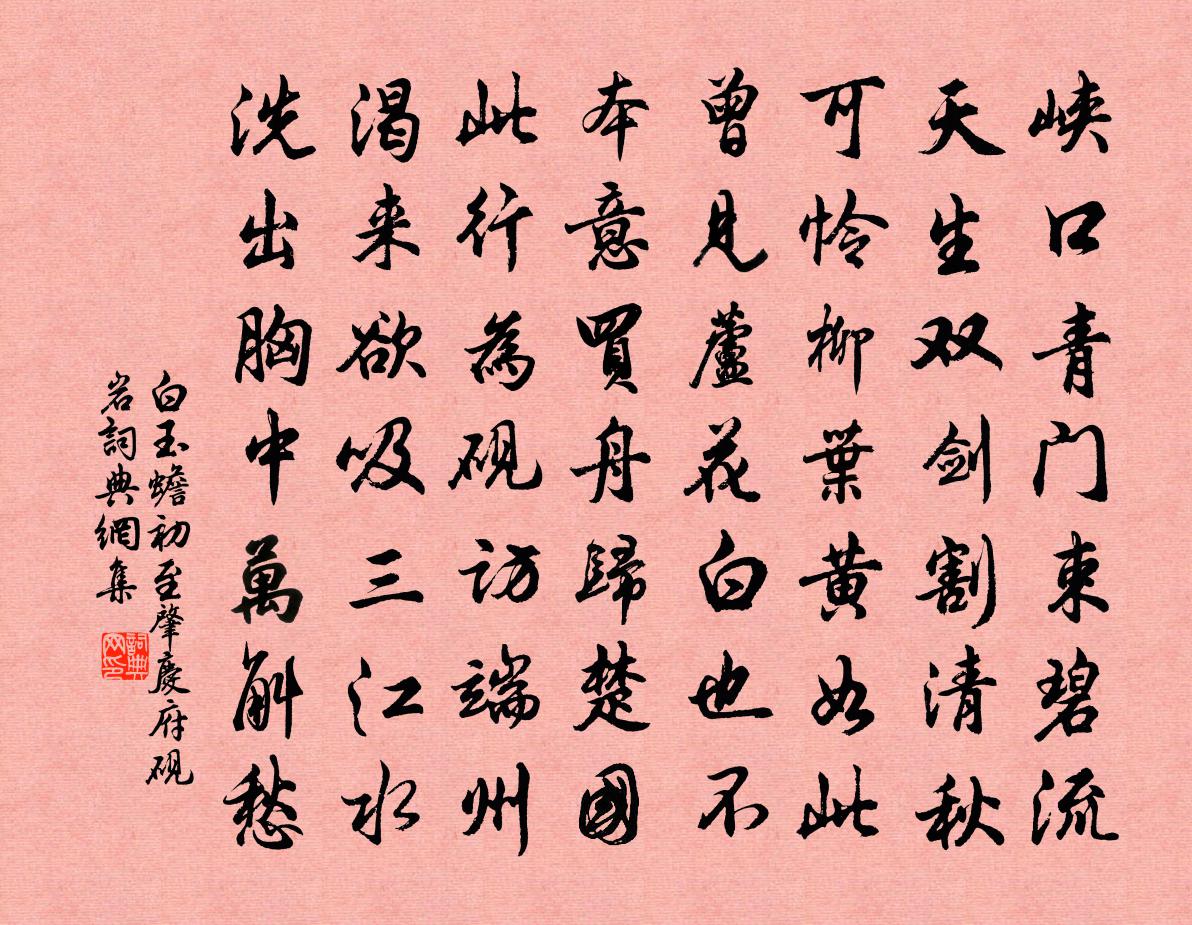 峡口青门束碧流
天生双剑割清秋
可怜柳葉黄如此
曾見蘆花白也不
本意買舟歸楚國
此行為硯訪端州
渴来欲吸三江水
洗出胸中萬斛愁
白玉蟾初至肇慶府硯
岩詞典網集
詞典
网印